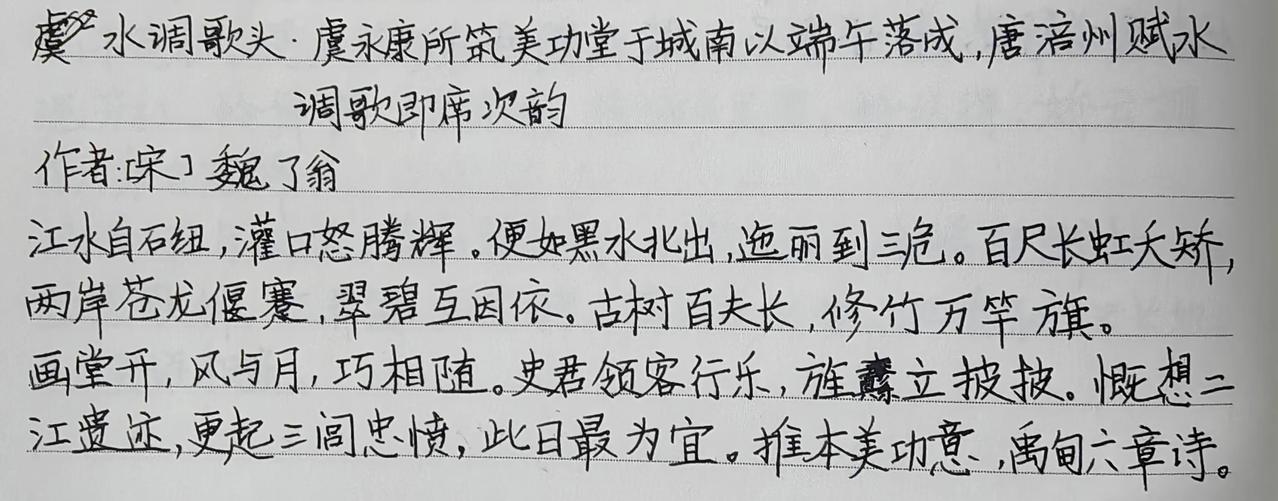 水调歌头·虞永康所筑美功堂于城南以端午落成,唐涪州赋水
调歌即席次韵
作者:[宋]魏了翁
江水自石纽,灌口怒腾辉。便如黑水北出,迤丽到三危。百尺长虹夭矫,
两岸苍龙偃蹇,翠碧互因依。古树百夫长,修竹万竿旗。
画堂开,风与月,巧相随。史君领客行乐,旌纛立披披。慨想二
江遗迹,更起三闾忠愤,此日最为宜。推本美功意,禹甸六章诗。